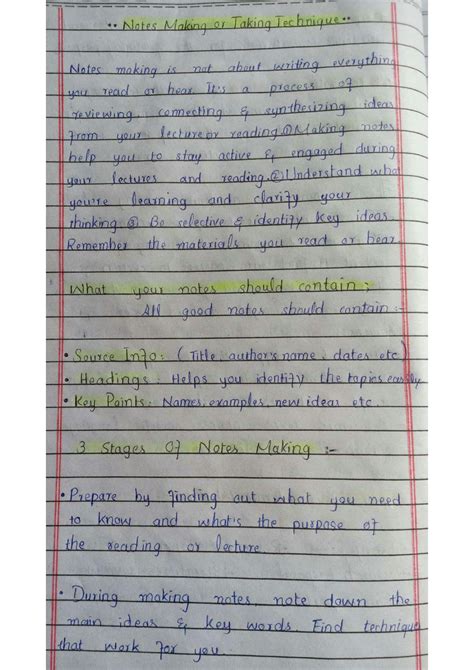 •• Notes Making or Taking Technique ••
Notes making is not about writing everything
you read or hear. It's a process of
reviewing, connecting & synthesizing ideas
from your lecture or reading. Making notes
help you to stay active & engaged during
your lectures and reading. Understand what
you're learning and clarify your
thinking. Be selective & identify key ideas.
Remember the materials you read or hear
What your notes should contain ;
All good notes should contain :-
• Source Info : ( Title, author's name, dates etc )
• Headings : Helps you identify the topics easily
• Key Points : Names, examples, new ideas etc.
3 Stages Of Notes Making :-
• Prepare by finding out what you need
to know and what's the purpose of
the reading or lecture
• During making notes, note down the
main ideas & key words. Find technique
that work for you.